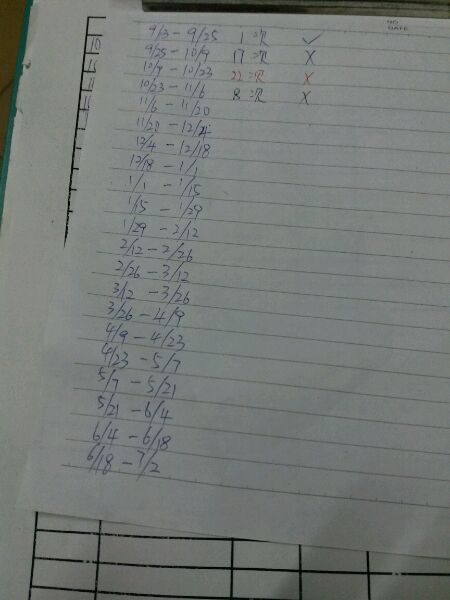 NO.
DATE
9/3 - 9/25 1次 ✓
9/25 - 10/9 17次 X
10/9 - 10/23 22次 X
10/23 - 11/6 8次 X
11/6 - 11/20
11/20 - 12/4
12/4 - 12/18
12/18 - 1/1
1/1 - 1/15
1/15 - 1/29
1/29 - 2/12
2/12 - 2/26
2/26 - 3/12
3/12 - 3/26
3/26 - 4/9
4/9 - 4/23
4/23 - 5/7
5/7 - 5/21
5/21 - 6/4
6/4 - 6/18
6/18 - 7/2